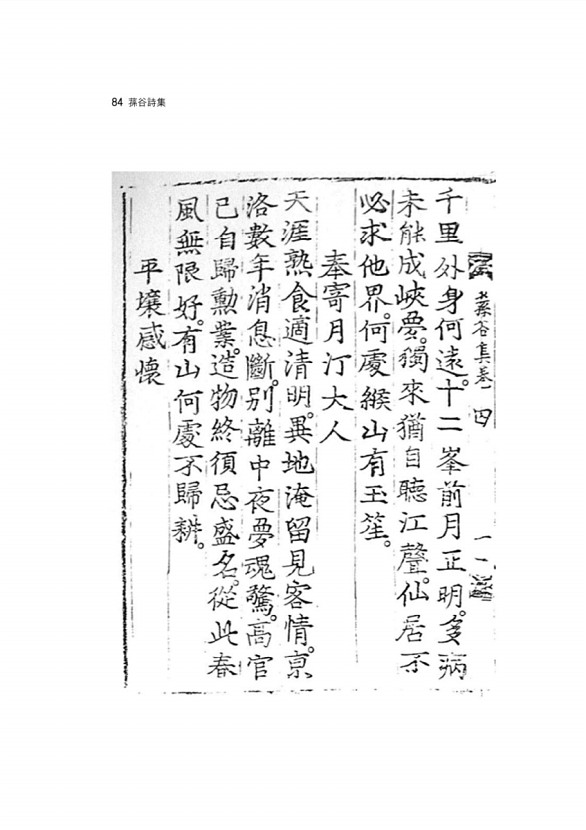 84 蓀谷詩集
蓀谷集卷四 一一
千里外身何遠。十二峯前月正明。多病
未能成峽夢。獨來猶自聽江聲。仙居不
必求他界。何處緱山有玉笙。
奉寄月汀大人
天涯熟食適清明。異地淹留見客情。京
洛數年消息斷。別離中夜夢魂驚。高官
已自歸勳業。造物終須忌盛名。從此春
風無限好。有山何處不歸耕。
平壤感懷